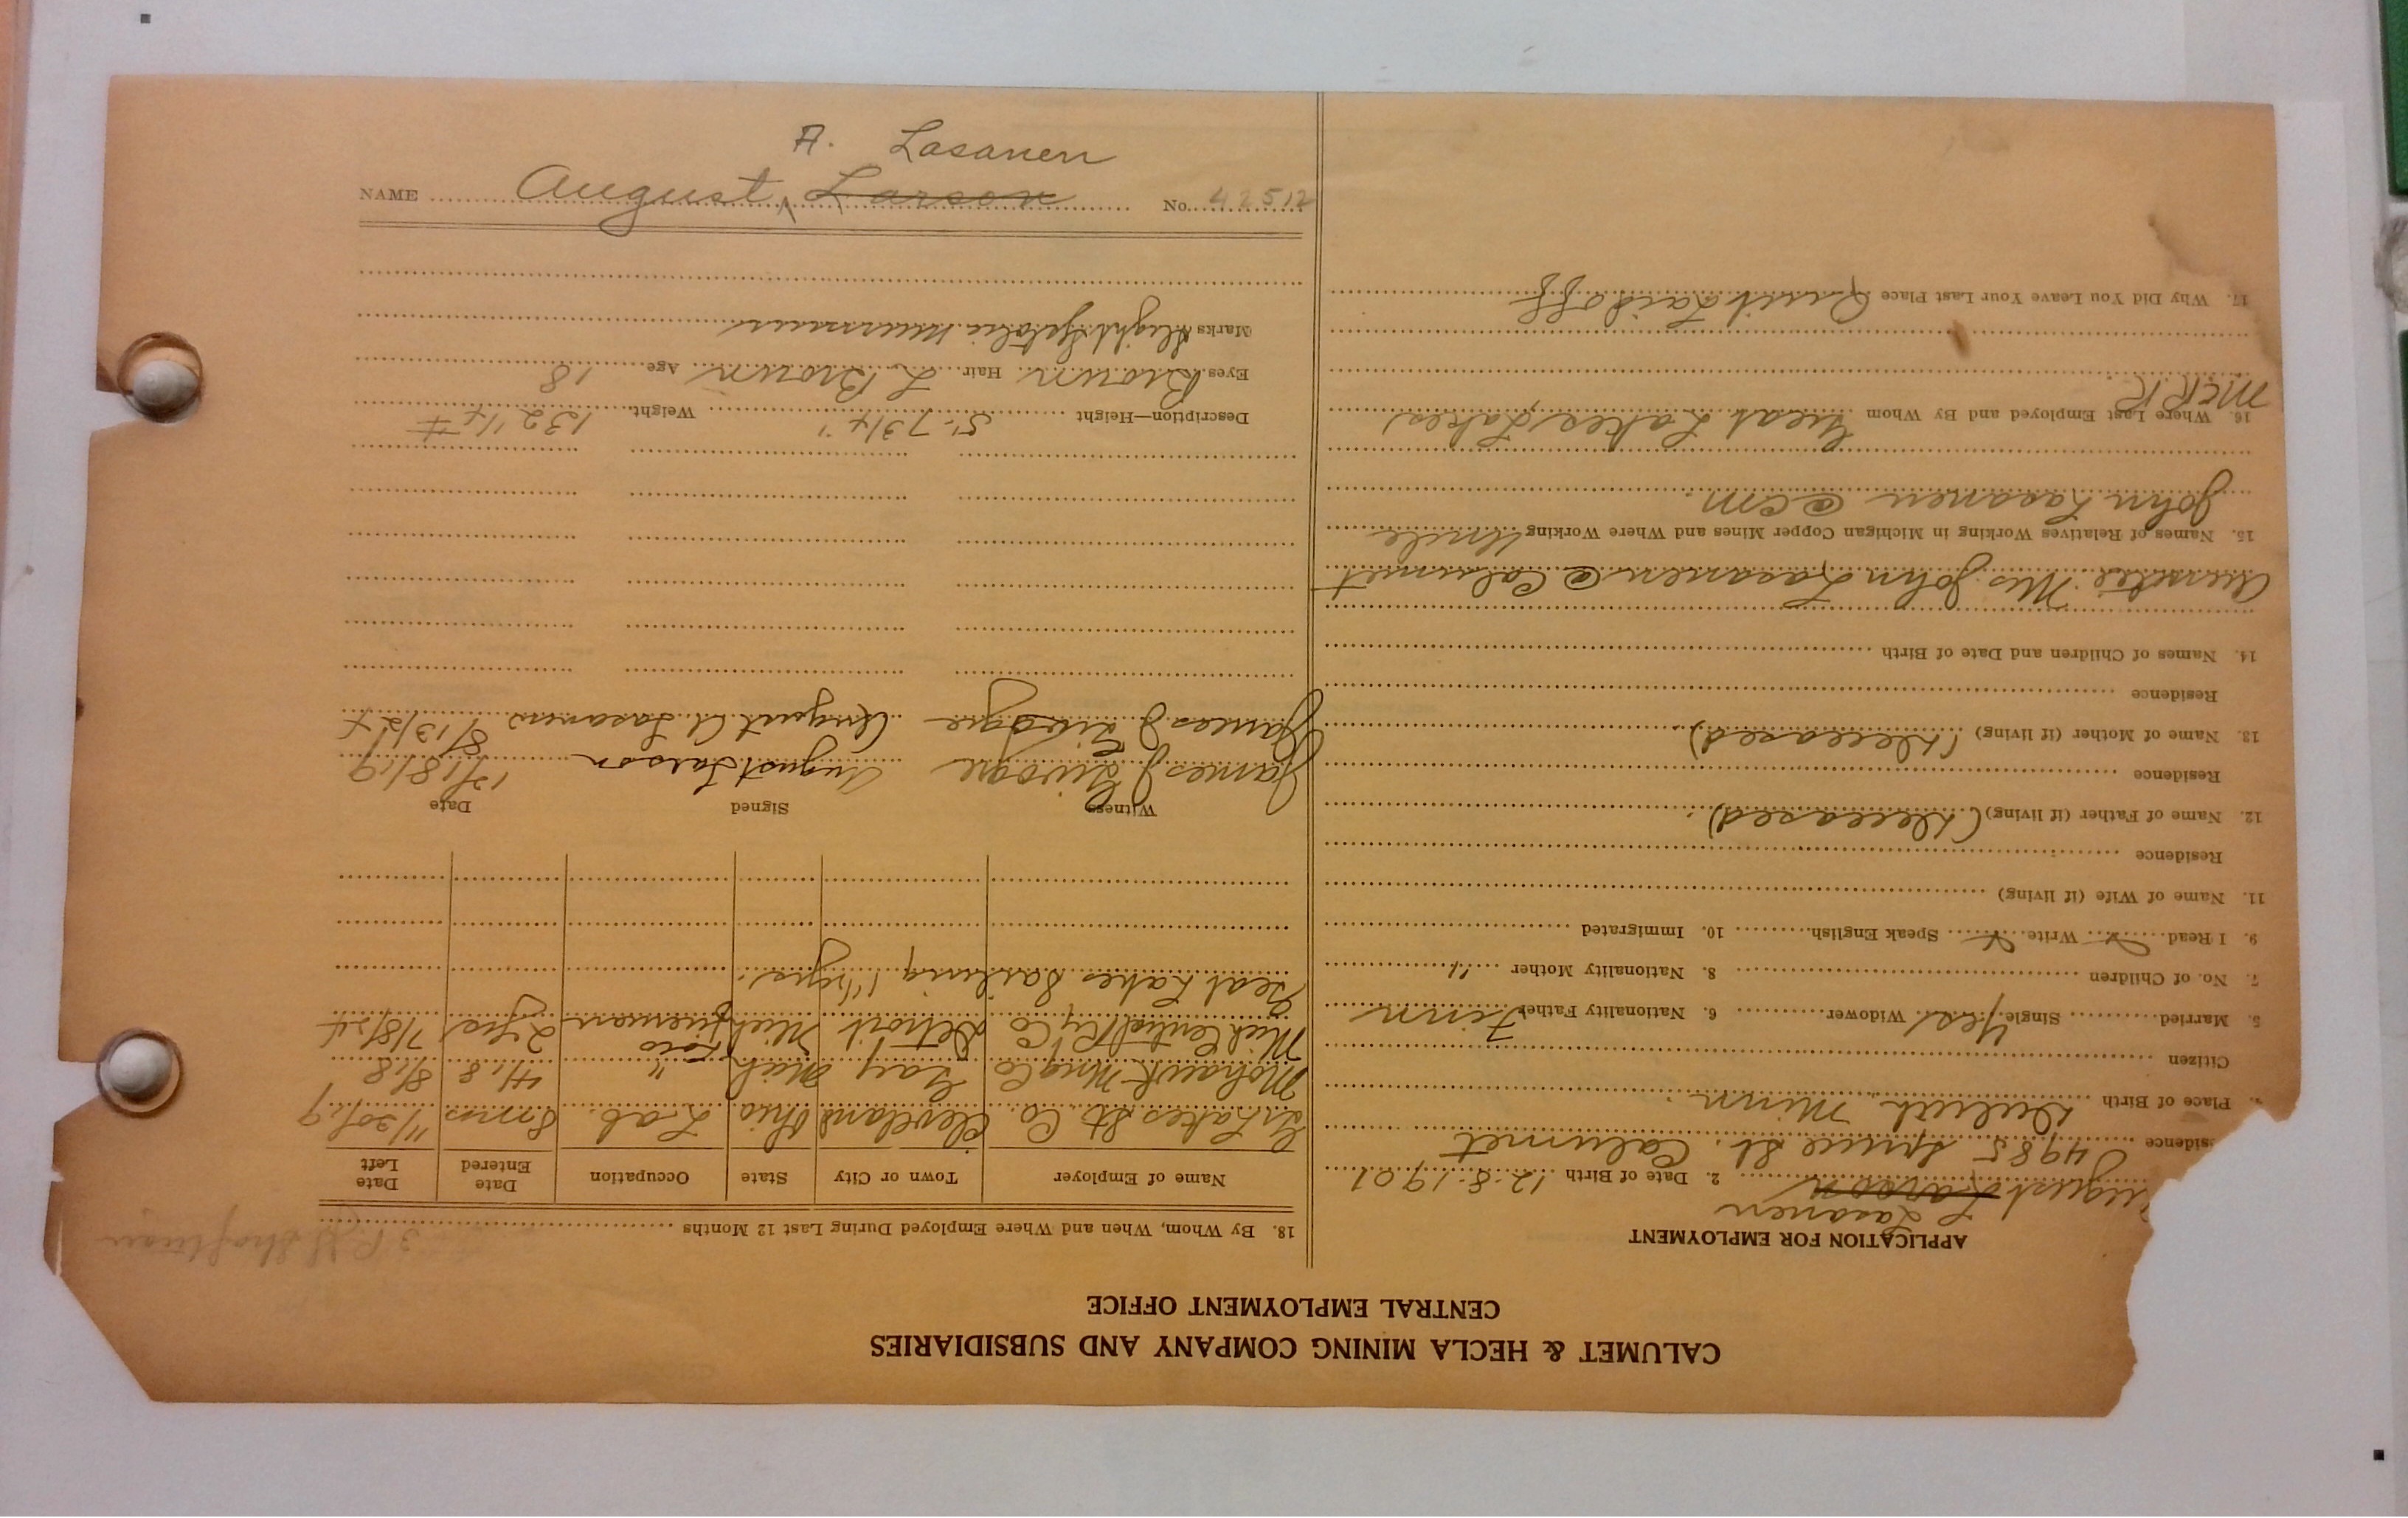 CALUMET & HECLA MINING COMPANY AND SUBSIDIARIES
CENTRAL EMPLOYMENT OFFICE
APPLICATION FOR EMPLOYMENT
Lasanen
August Larson 2. Date of Birth 12-8-1901
4985 Spruce St. Calumet
Place of Birth Duluth Minn.
Citizen
5. Married Single Yes Widower 6. Nationality Father Finn
7. No. of Children 8. Nationality Mother "
9. I Read X Write X Speak English 10. Immigrated
11. Name of Wife (if living)
Residence
12. Name of Father (if living) (Deceased)
Residence
13. Name of Mother (if living) (Deceased)
Residence
14. Names of Children and Date of Birth
Mrs John Lasanen @ Calumet
15. Names of Relatives Working in Michigan Copper Mines and Where Working Uncle
John Lasanen @ CM.
16. Where Last Employed and By Whom Great Lakes, Lakes
MCRR
17. Why Did You Leave Your Last Place Quit Laid off
18. By Whom, When and Where Employed During Last 12 Months
Name of Employer Town or City State Occupation Date Entered Date Left
Gt Lakes St. Co. Cleveland Ohio Lab. 8 mns 11/30/19
Mohawk Mng Co Gay Mich " 4/18 8/18
Mich Central Ry Co Detroit Mich Loco fireman 2 yrs 7/8/24
Great Lakes Sailing 1 1/2 yrs.
Witness Signed Date
James J August Larson 12/18/19
James J August A. Lasanen 8/13/24
Description—Height 5'-7 3/4" Weight 132 1/4 #
Eyes Brown Hair L Brown Age 18
Marks Slight
A. Lasanen
NAME August Larson No. 42512